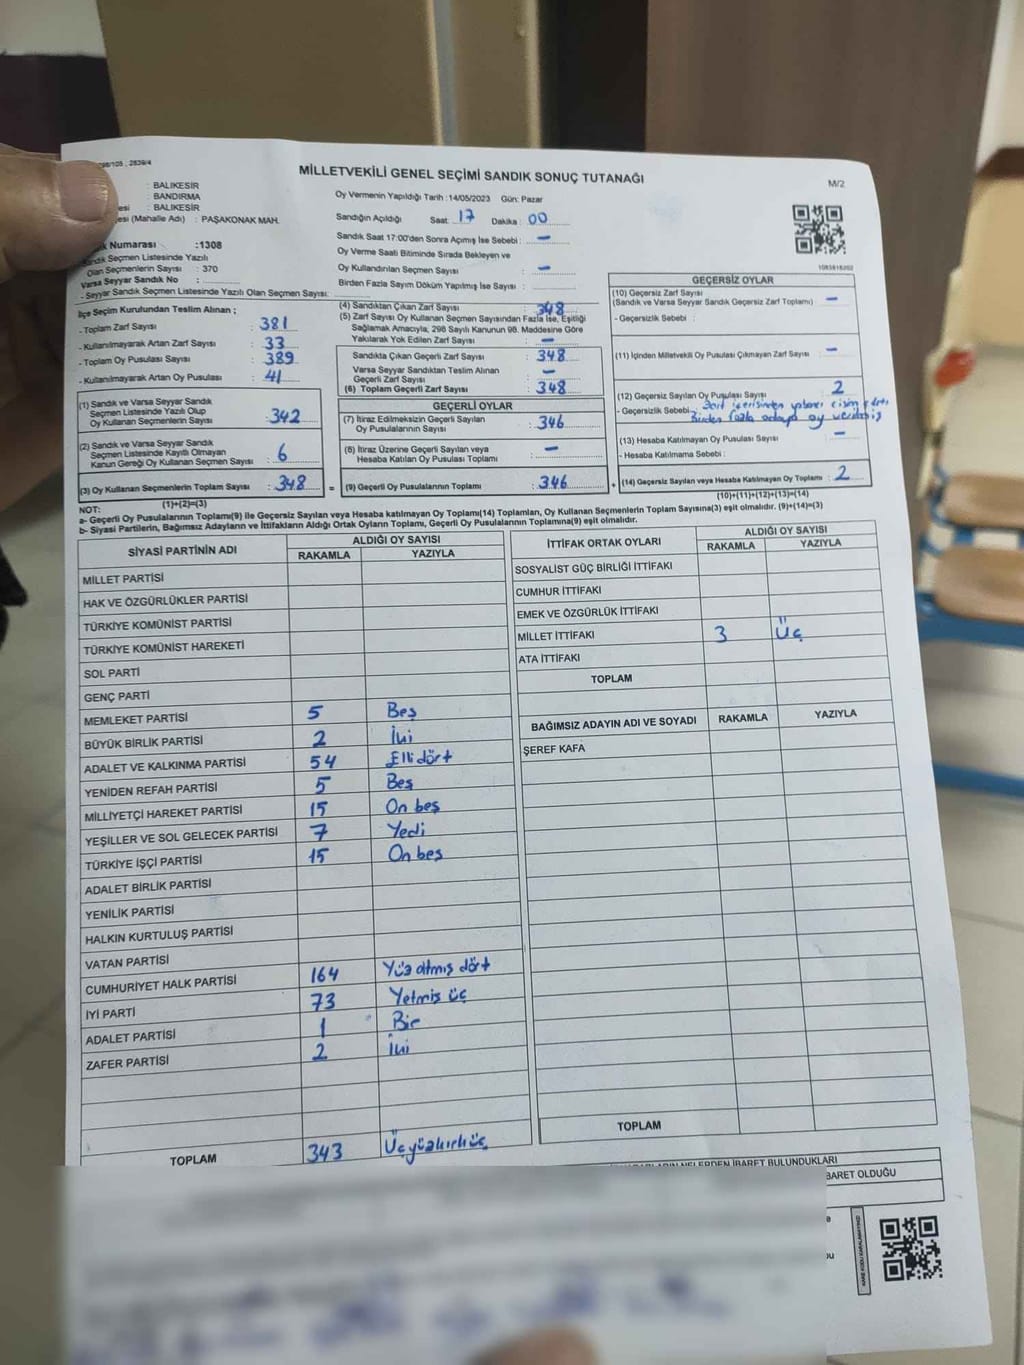 MİLLETVEKİLİ GENEL SEÇİMİ SANDIK SONUÇ TUTANAĞI
M/2
: BALIKESİR
: BANDIRMA
: BALIKESİR
(Mahalle Adı) : PAŞAKONAK MAH.
Numarası :1308
Sandık Seçmen Listesinde Yazılı
Olan Seçmenlerin Sayısı : 370
Varsa Seyyar Sandık No :
- Seyyar Sandık Seçmen Listesinde Yazılı Olan Seçmen Sayısı:
Oy Vermenin Yapıldığı Tarih :14/05/2023 Gün: Pazar
Sandığın Açıldığı Saat: 17 Dakika : 00
Sandık Saat 17:00'den Sonra Açımış İse Sebebi : –
Oy Verme Saati Bitiminde Sırada Bekleyen ve
Oy Kullandırılan Seçmen Sayısı : –
Birden Fazla Sayım Döküm Yapılmış İse Sayısı :
İlçe Seçim Kurulundan Teslim Alınan ;
- Toplam Zarf Sayısı : 381
- Kullanılmayarak Artan Zarf Sayısı : 33
- Toplam Oy Pusulası Sayısı : 389
- Kullanılmayarak Artan Oy Pusulası : 41
(1) Sandık ve Varsa Seyyar Sandık
Seçmen Listesinde Yazılı Olup
Oy Kullanan Seçmenlerin Sayısı : 342
(2) Sandık ve Varsa Seyyar Sandık
Seçmen Listesinde Kayıtlı Olmayan
Kanun Gereği Oy Kullanan Seçmen Sayısı : 6
(3) Oy Kullanan Seçmenlerin Toplam Sayısı : 348
(1)+(2)=(3)
(4) Sandıktan Çıkan Zarf Sayısı : 348
(5) Zarf Sayısı Oy Kullanan Seçmen Sayısından Fazla İse, Eşitliği
Sağlamak Amacıyla, 298 Sayılı Kanunun 98. Maddesine Göre
Yakılarak Yok Edilen Zarf Sayısı : –
Sandıkta Çıkan Geçerli Zarf Sayısı : 348
Varsa Seyyar Sandıktan Teslim Alınan
Geçerli Zarf Sayısı : –
(6) Toplam Geçerli Zarf Sayısı : 348
GEÇERLİ OYLAR
(7) İtiraz Edilmeksizin Geçerli Sayılan
Oy Pusulalarının Sayısı : 346
(8) İtiraz Üzerine Geçerli Sayılan veya
Hesaba Katılan Oy Pusulası Toplamı : –
= (9) Geçerli Oy Pusulalarının Toplamı : 346
1085816202
GEÇERSİZ OYLAR
(10) Geçersiz Zarf Sayısı
(Sandık ve Varsa Seyyar Sandık Geçersiz Zarf Toplamı) : –
- Geçersizlik Sebebi :
(11) İçinden Milletvekili Oy Pusulası Çıkmayan Zarf Sayısı : –
(12) Geçersiz Sayılan Oy Pusulası Sayısı : 2
- Geçersizlik Sebebi : Zarf içerisinden yabancı cisim çıktı
Birden fazla adaya oy verilmiş
(13) Hesaba Katılmayan Oy Pusulası Sayısı : –
- Hesaba Katılmama Sebebi :
+ (14) Geçersiz Sayılan veya Hesaba Katılmayan Oy Toplamı : 2
(10)+(11)+(12)+(13)=(14)
NOT:
a- Geçerli Oy Pusulaları Toplamı(9) ile Geçersiz Sayılan veya Hesaba Katılmayan Oy Toplamı(14) Toplamları, Oy Kullanan Seçmenlerin Toplam Sayısına(3) eşit olmalıdır. (9)+(14)=(3)
b- Siyasi Partilerin, Bağımsız Adayların ve İttifakların Aldığı Ortak Oyların Toplamı, Geçerli Oy Pusulalarının Toplamına(9) eşit olmalıdır.
SİYASİ PARTİNİN ADI ALDIĞI OY SAYISI
RAKAMLA YAZIYLA
MİLLET PARTİSİ
HAK VE ÖZGÜRLÜKLER PARTİSİ
TÜRKİYE KOMÜNİST PARTİSİ
TÜRKİYE KOMÜNİST HAREKETİ
SOL PARTİ
GENÇ PARTİ
MEMLEKET PARTİSİ 5 Beş
BÜYÜK BİRLİK PARTİSİ 2 İki
ADALET VE KALKINMA PARTİSİ 54 Elli dört
YENİDEN REFAH PARTİSİ 5 Beş
MİLLİYETÇİ HAREKET PARTİSİ 15 On beş
YEŞİLLER VE SOL GELECEK PARTİSİ 7 Yedi
TÜRKİYE İŞÇİ PARTİSİ 15 On beş
ADALET BİRLİK PARTİSİ
YENİLİK PARTİSİ
HALKIN KURTULUŞ PARTİSİ
VATAN PARTİSİ
CUMHURİYET HALK PARTİSİ 164 Yüz atmış dört
İYİ PARTİ 73 Yetmiş üç
ADALET PARTİSİ 1 Bir
ZAFER PARTİSİ 2 İki
TOPLAM 343 Üçyüzkırküç
İTTİFAK ORTAK OYLARI ALDIĞI OY SAYISI
RAKAMLA YAZIYLA
SOSYALİST GÜÇ BİRLİĞİ İTTİFAKI
CUMHUR İTTİFAKI
EMEK VE ÖZGÜRLÜK İTTİFAKI
MİLLET İTTİFAKI 3 Üç
ATA İTTİFAKI
TOPLAM
BAĞIMSIZ ADAYIN ADI VE SOYADI RAKAMLA YAZIYLA
ŞEREF KAFA
TOPLAM
NELERDEN İBARET BULUNDUKLARI
BARET OLDUĞU